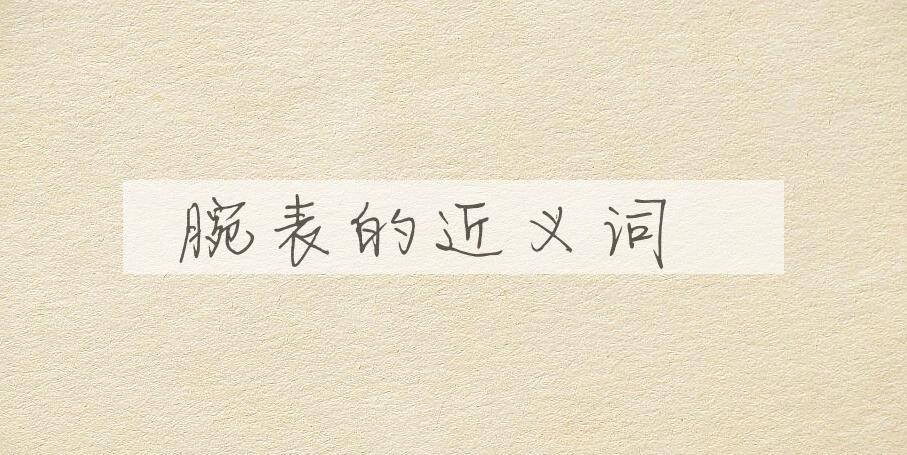 腕表的近义词